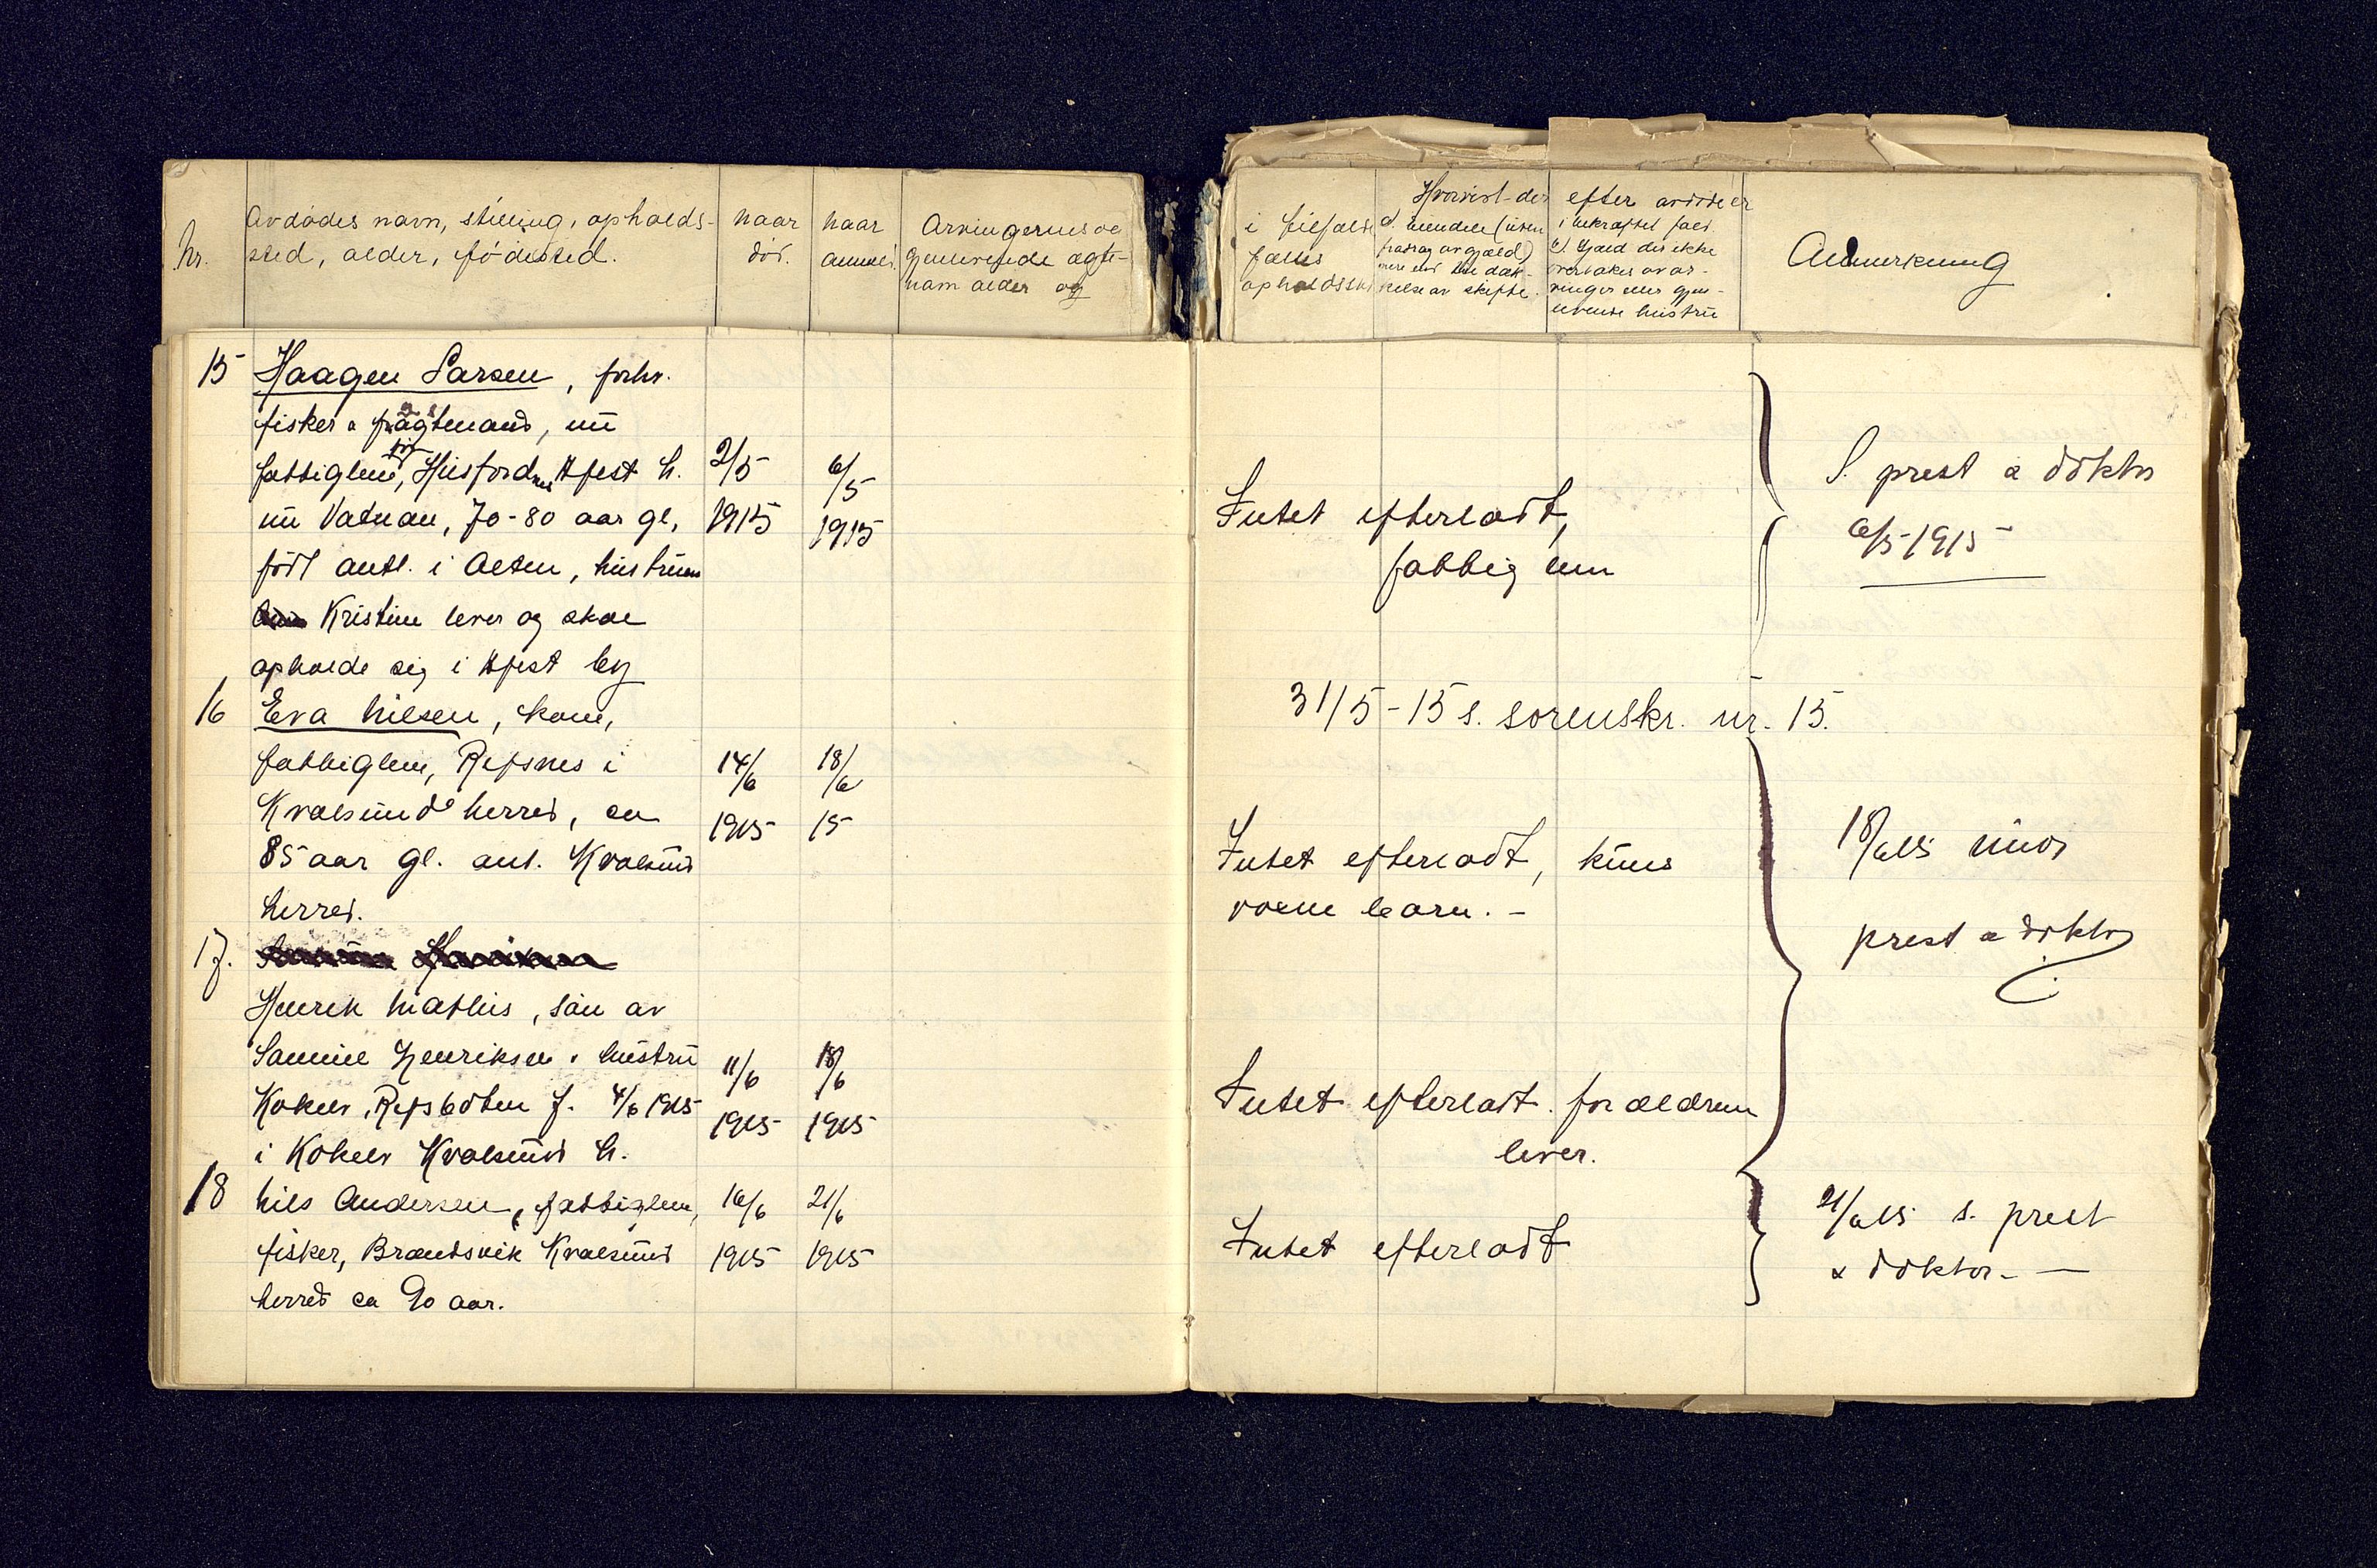 Nr.
Avdødes navn, stilling, opholds-
sted, alder, fødested.
naar
død.
naar
anmel.
Arvingernes og
gjenlevende ægte-
navn alder og
i tilfælde
fælles
opholdssted
Hvorvist der efter avdøde er
a). eiendele (uten
fradrag av gjæld)
mere end til dæk-
kelse av skifte.
i bekræftet fald
b) Gjæld der ikke
overtakes av ar-
vinger eller gjen-
levende hustru
Anmerkning
15 Haagen Larsen, forhv.
fisker & fragtemand, nu
fattiglem, Husfjorden Hfest h.
nu Vatnan, 70-80 aar gl,
født antl. i Alten, hustruen
Kristine lever og skal
opholde sig i Hfest by
2/5
1915
6/5
1915
Intet efterladt,
fattiglem
S. prest & doktor
6/5-1915
31/5-15 s. sorenskr. nr. 15.
16 Eva Nilsen, kone,
fattiglem, Repsnes i
Kvalsund herred, ca
85 aar gl. ant. Kvalsund
herred.
14/6
1915
18/6
15
Intet efterladt, kuns
voxne barn. -
18/6 15 underr.
prest & doktor
17.
Henrik Mathis, søn av
Samuel Henriksen & hustru
Kokelv, Repsbotten f. 4/6 1915
i Kokelv Kvalsund h.
11/6
1915
18/6
1915
Intet efterladt. forældrene
lever.
18 Nils Andersen, fattiglem,
fisker, Brandsvik Kvalsund
herred ca 90 aar.
16/6
1915
21/6
1915
Intet efterladt
21/6 15 s. prest
& doktor. -